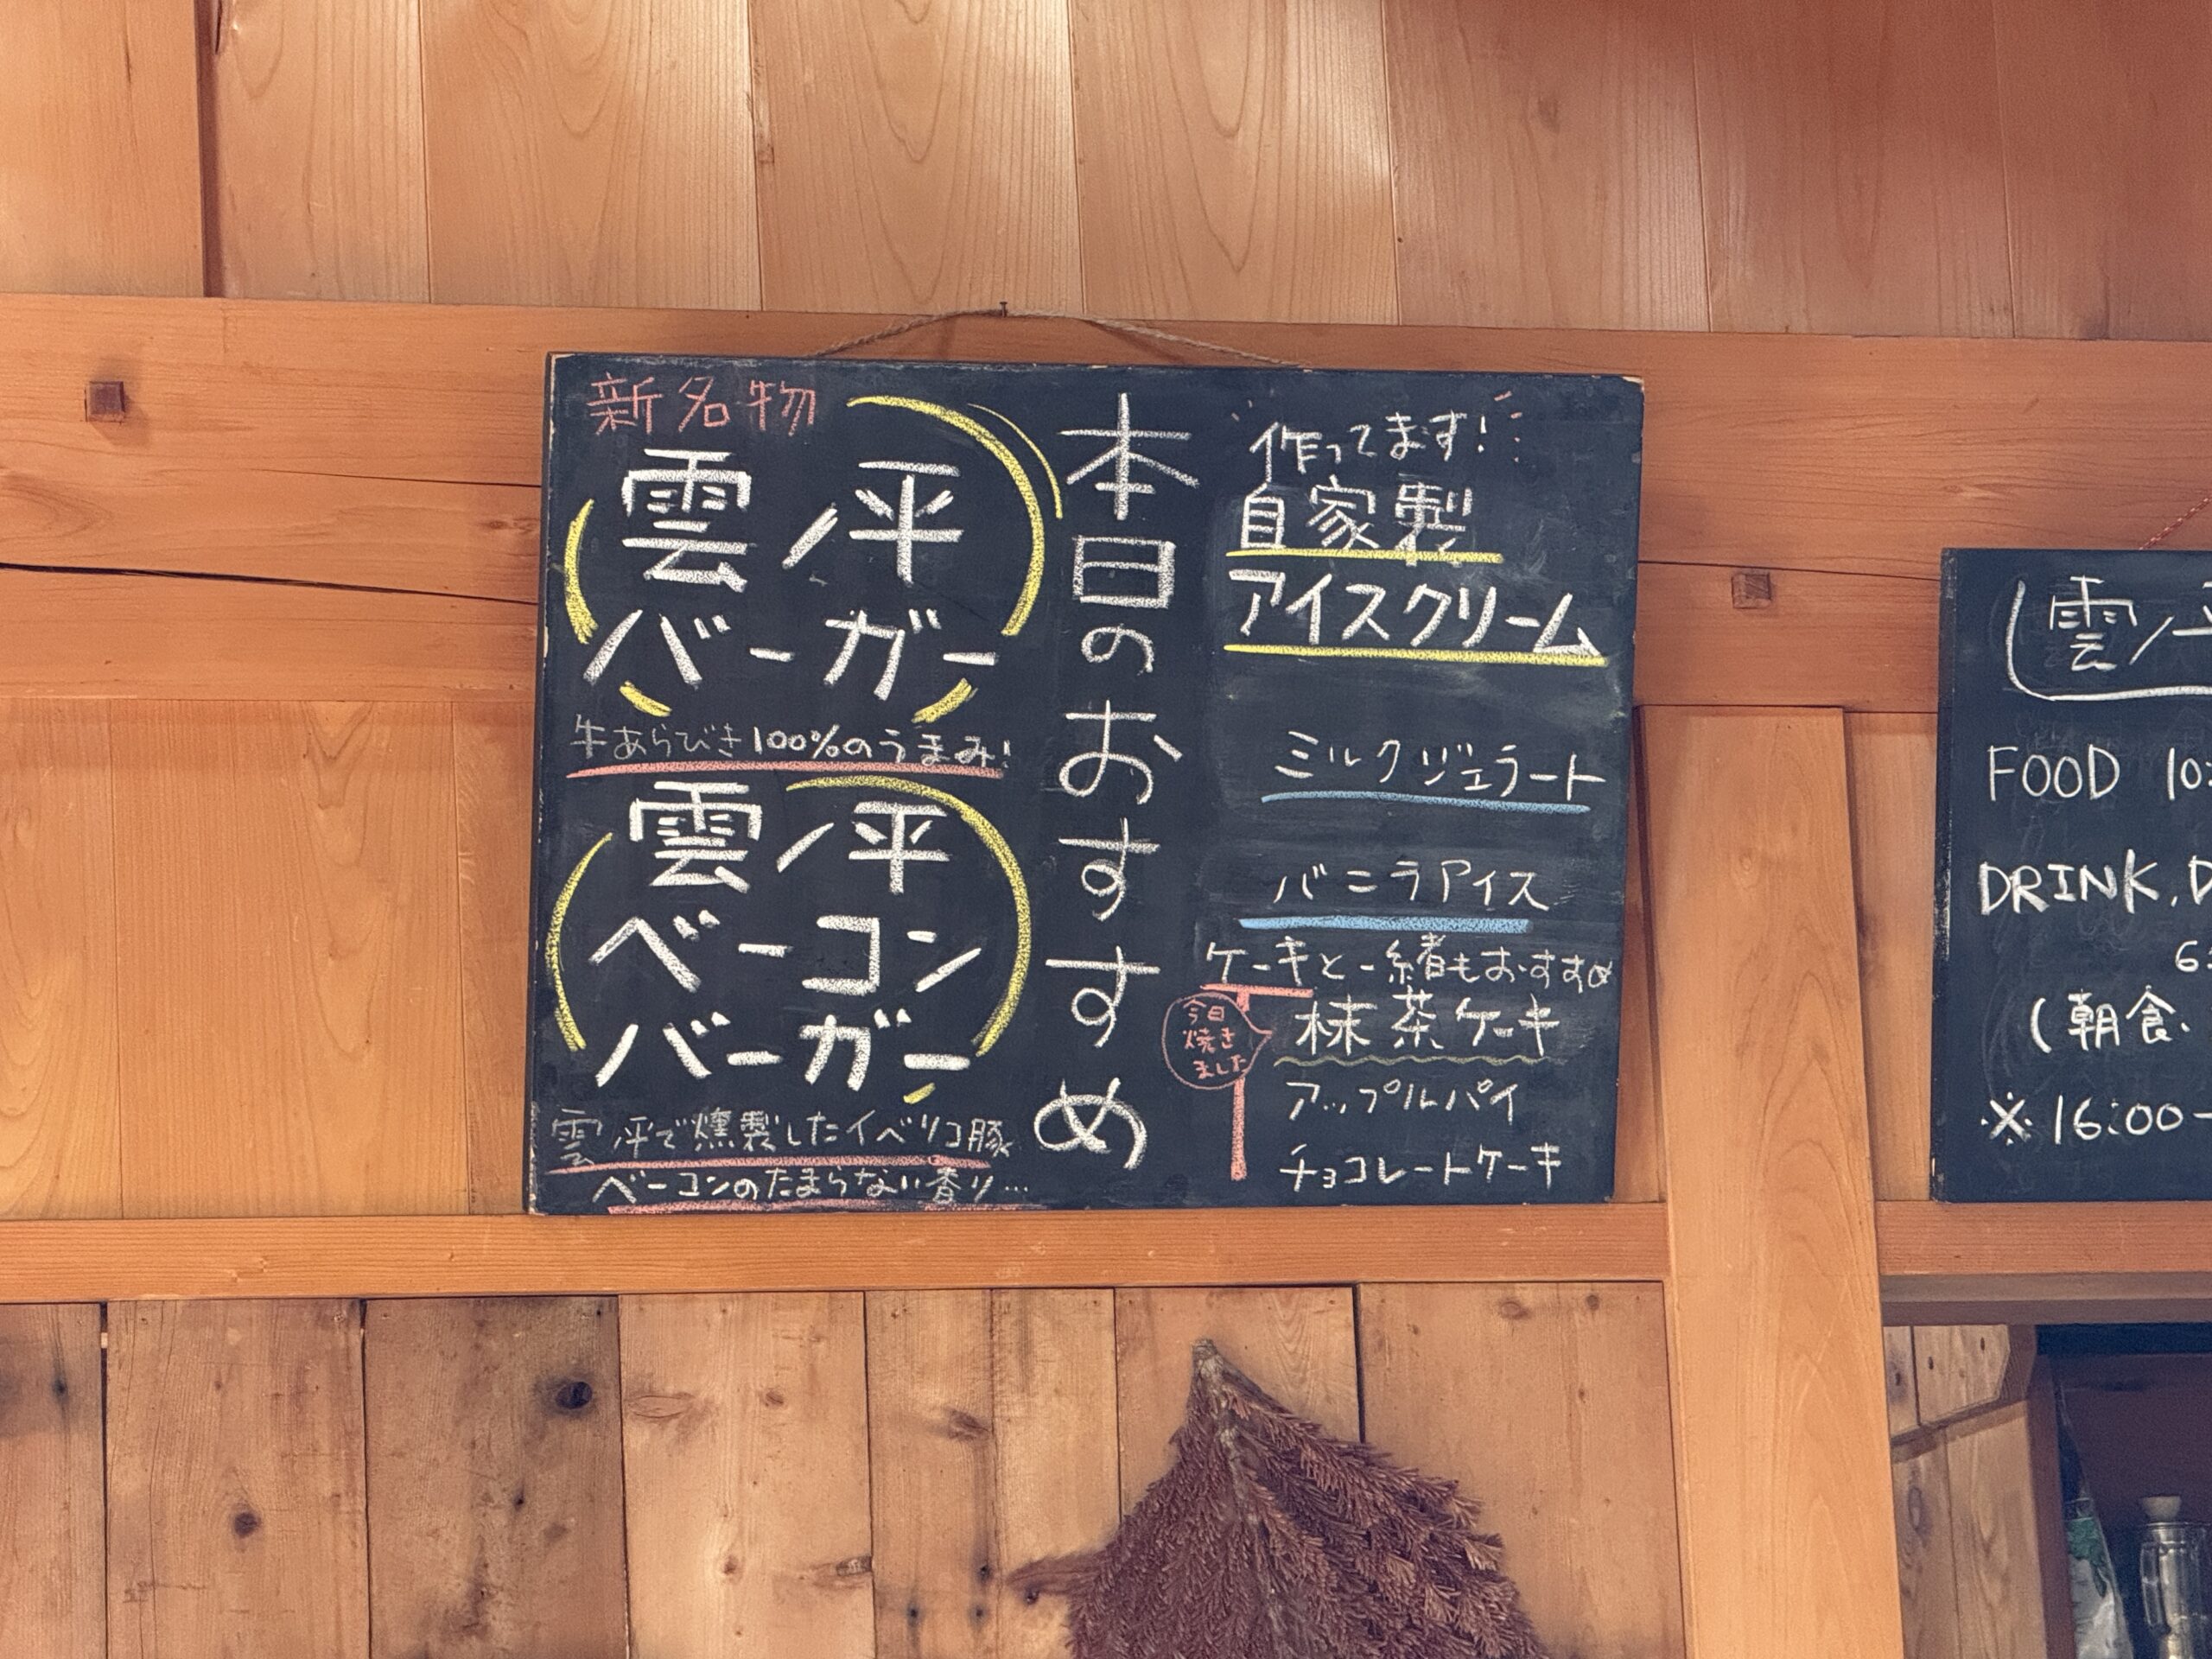 本日のおすすめ
新名物
雲ノ平
バーガー
牛あらびき100%のうまみ!
雲ノ平
ベーコン
バーガー
雲ノ平で燻製したイベリコ豚
ベーコンのたまらない香り…
作ってます!
自家製
アイスクリーム
ミルクジェラート
バニラアイス
ケーキと一緒もおすすめ
今日
焼き
ました
抹茶ケーキ
アップルパイ
チョコレートケーキ
雲ノ
FOOD 10:
DRINK,D
6:
(朝食、
※16:00-